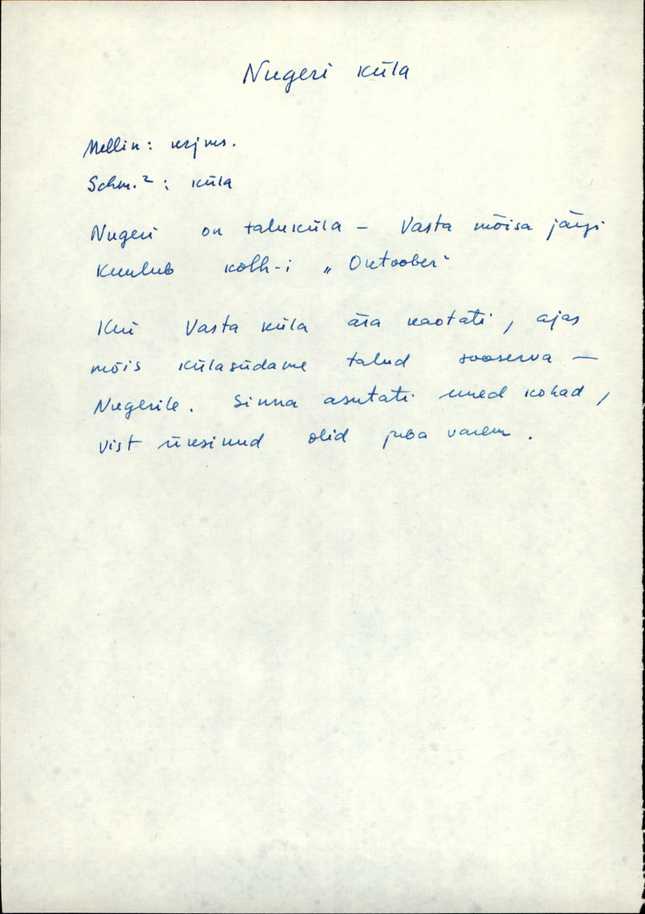 Nugeri küla
Mellin: krjms.
Schm.²: küla
Nugeri on taluküla – Vasta mõisa järgi
Kuulub kolh-i „Oktoober"
Kui Vasta küla ära kaotati, ajas
mõis külasüdame talud sooserva –
Nugerile. Sinna asutati uued kohad,
vist üksikud olid juba varem.